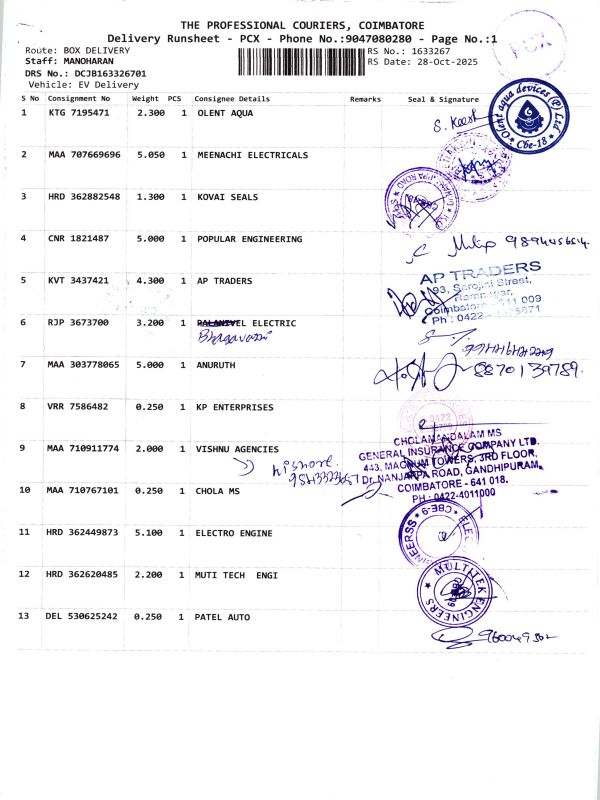 THE PROFESSIONAL COURIERS, COIMBATORE
Delivery Runsheet - PCX - Phone No.:9047080280 - Page No.:1
PCX
Route: BOX DELIVERY RS No.: 1633267
Staff: MANOHARAN RS Date: 28-Oct-2025
DRS No.: DCJB163326701
Vehicle: EV Delivery
S No Consignment No Weight PCS Consignee Details Remarks Seal & Signature
1 KTG 7195471 2.300 1 OLENT AQUA
Olent aqua devices (P) Ltd Cbe-18
2 MAA 707669696 5.050 1 MEENACHI ELECTRICALS
3 HRD 362882548 1.300 1 KOVAI SEALS
4 CNR 1821487 5.000 1 POPULAR ENGINEERING
5 KVT 3437421 4.300 1 AP TRADERS
AP TRADERS
93, Sarojini Street,
Ramnagar,
Coimbatore - 641 009
Ph : 0422
6 RJP 3673700 3.200 1 PALANIVEL ELECTRIC
7 MAA 303778065 5.000 1 ANURUTH
8870139789
8 VRR 7586482 0.250 1 KP ENTERPRISES
9 MAA 710911774 2.000 1 VISHNU AGENCIES
Kishore
CHOLAMANDALAM MS
GENERAL INSURANCE COMPANY LTD.
443, MAGNUM TOWERS, 3RD FLOOR,
Dr. NANJAPPA ROAD, GANDHIPURAM,
COIMBATORE - 641 018.
PH : 0422-4011000
10 MAA 710767101 0.250 1 CHOLA MS
11 HRD 362449873 5.100 1 ELECTRO ENGINE
CBE-9
12 HRD 362620485 2.200 1 MUTI TECH ENGI
MULTITEK ENGINEERS
13 DEL 530625242 0.250 1 PATEL AUTO